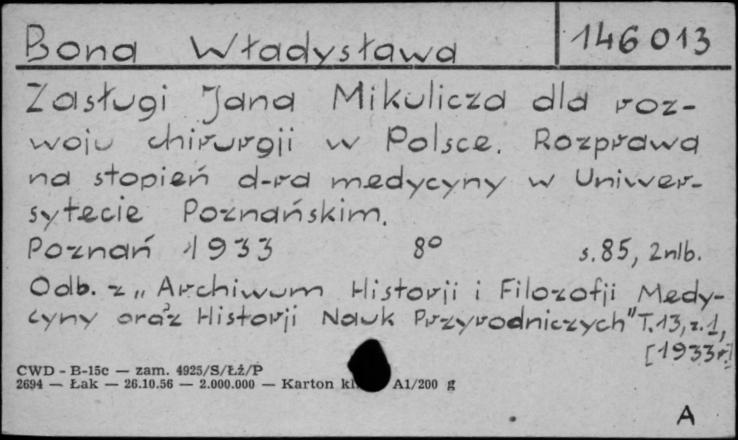 Bona Władysława 146013
Zasługi Jana Mikulicza dla roz-
woju chirurgji w Polsce. Rozprawa
na stopień d-ra medycyny w Uniwer-
sytecie Poznańskim.
Poznań 1933 8° s.85, 2nlb.
Odb. z „Archiwum Historji i Filozofji Medy-
cyny oraz Historji Nauk Przyrodniczych" T.13, z.1,
[1933r.]
CWD - B-15c — zam. 4925/S/Łż/P
2694 — Łak — 26.10.56 — 2.000.000 — Karton A1/200 g
A